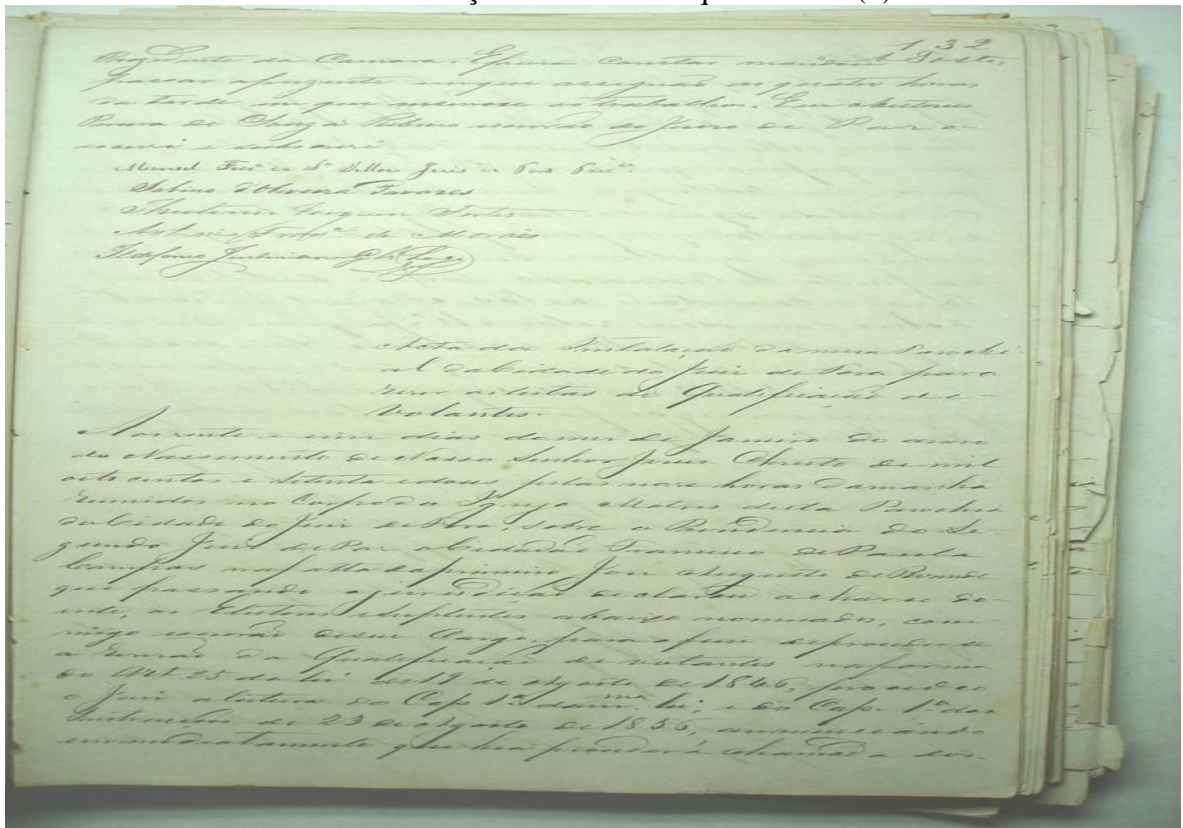 132
Prezidente da Camara. E para constar mandou o Juis to,
passar a prezente em que assignão as quatro horas
da tarde em que
Pereira de Chagas Ribeiro escrivão do Juizo de Paz o
escrevi e subscrevi
Manoel Juis de Paz
Sabino d'Oliveira Tavares
Joaquim
Antonio de Moraes
Ildefonso Justiniano
Acta da Instalaçaõ da meza Parochi
al da Cidade do Juiz de Fora para
rever as listas de Qualificaçaõ de
Votantes.
Aos vinte e um dias do mez de Janeiro do anno
do Nascimento de Nosso Senhor Jesus Christo de mil
oito centos e setenta e dous pelas nove horas da manhã
reunidos no Corpo da Igreja Matriz desta Parochia
da Cidade do Juiz de Fora sobre a Prezidencia do Se-
gundo Juiz de Paz o Cidadão Francisco de Paula
Campos na falta do primeiro José Augusto de Rezende
que passando a jurisdição declarou achar-se do-
ente, os Eleitores e Suplentes abaixo nomeados, com-
migo escrivão de seu Cargo, para o fim de proceder se
a revisão da Qualificação de votantes na forma
do Art. 25 da Lei de 19 de Agosto de 1846, procedeo
o Juiz a leitura do Cap. 1º da m.ma lei; e do Cap. 1º das
Instrucções de 23 de Agosto de 1856, annunciando
immediatamente que hia proceder a chamada dos